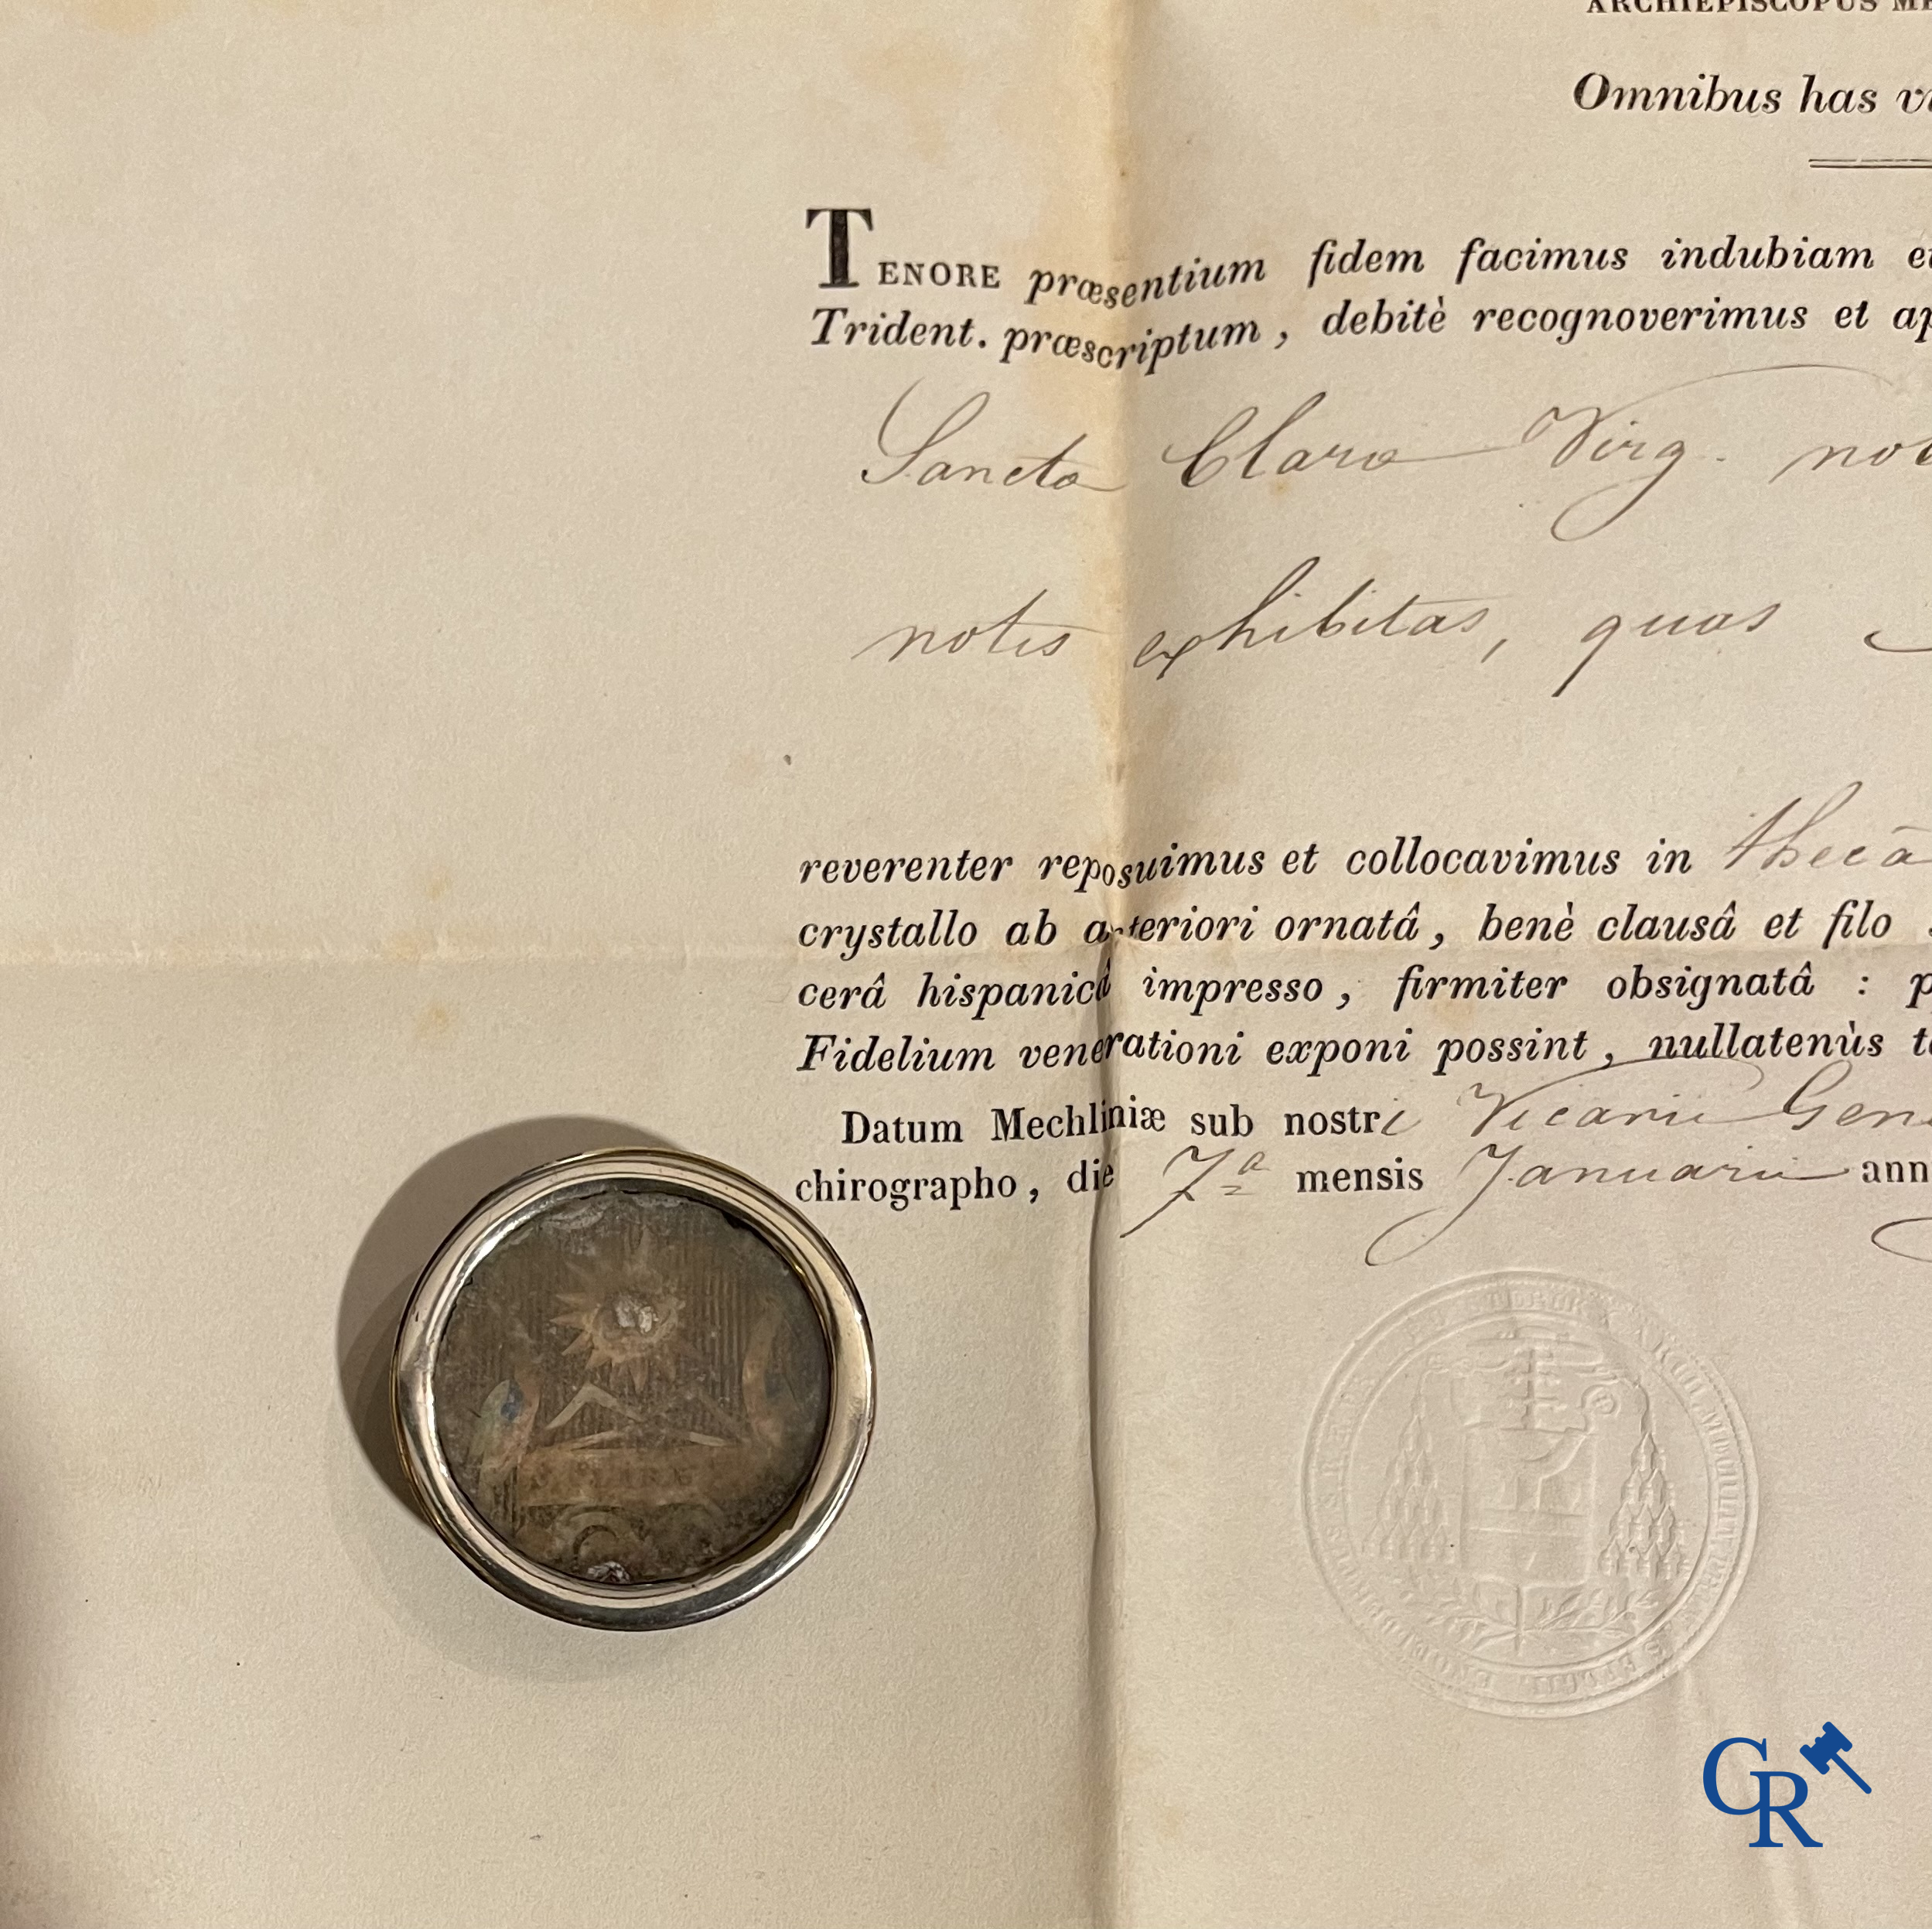 ARCHIEPISCOPUS
Omnibus has
TENORE præsentium fidem facimus indubiam
Trident. præscriptum, debitè recognoverimus et
Sancta Clara Virg.
notis exhibitas, quas
reverenter reposuimus et collocavimus in thecâ
crystallo ab anteriori ornatâ, benè clausâ et filo
cerâ hispanicâ impresso, firmiter obsignatâ :
Fidelium venerationi exponi possint, nullatenùs
Datum Mechliniæ sub nostri Vicarii
chirographo, die 7a mensis Januarii
CR